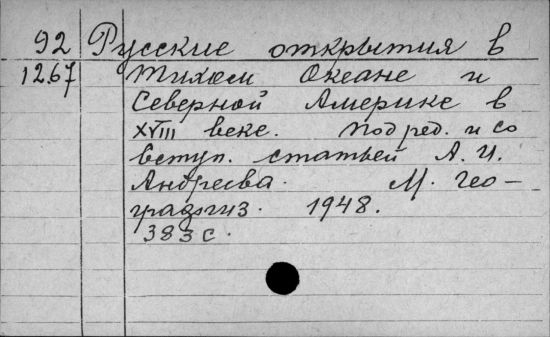 92 Русские открытия в
1267 Тихом Океане и
Северной Америке в
XVIII веке. Под ред. и со
вступ. статьей А. И.
Андреева. М. Гео-
графгиз. 1948.
383 с.